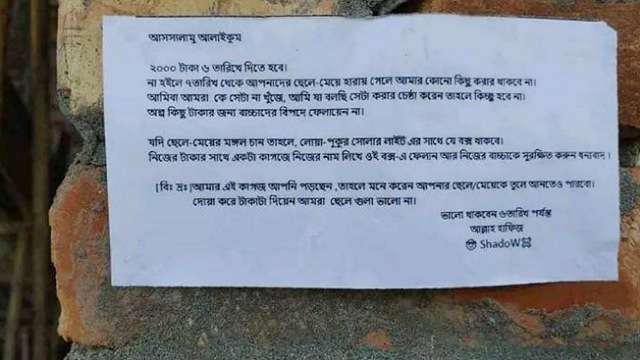 আসসালামু আলাইকুম
২০০০ টাকা ৬ তারিখে দিতে হবে।
না হইলে ৭তারিখ থেকে আপনাদের ছেলে-মেয়ে হারায় গেলে আমার কোনো কিছু করার থাকবে না।
আমিবা আমরা কে সেটা না খুঁজে, আমি যা বলছি সেটা করার চেষ্টা করেন তাহলে কিচ্ছু হবে না।
অল্প কিছু টাকার জন্য বাচ্চাদের বিপদে ফেলায়েন না।
যদি ছেলে-মেয়ের মঙ্গল চান তাহলে, লোয়া-পুকুর সোলার লাইট এর সাথে যে বক্স থাকবে।
নিজের টাকার সাথে একটা কাগজে নিজের নাম লিখে ওই বক্স-এ ফেলান আর নিজের বাচ্চাকে সুরক্ষিত করুন ধন্যবাদ।
[বিঃ দ্রঃ]আমার এই কাগজ আপনি পড়ছেন, তাহলে মনে করেন আপনার ছেলে/মেয়েকে তুলে আনতেও পারবো।
দোয়া করে টাকাটা দিয়েন আমরা ছেলে গুলা ভালো না।
ভালো থাকবেন ৬তারিখ পর্যন্ত
আল্লাহ হাফিজ
ShadoW